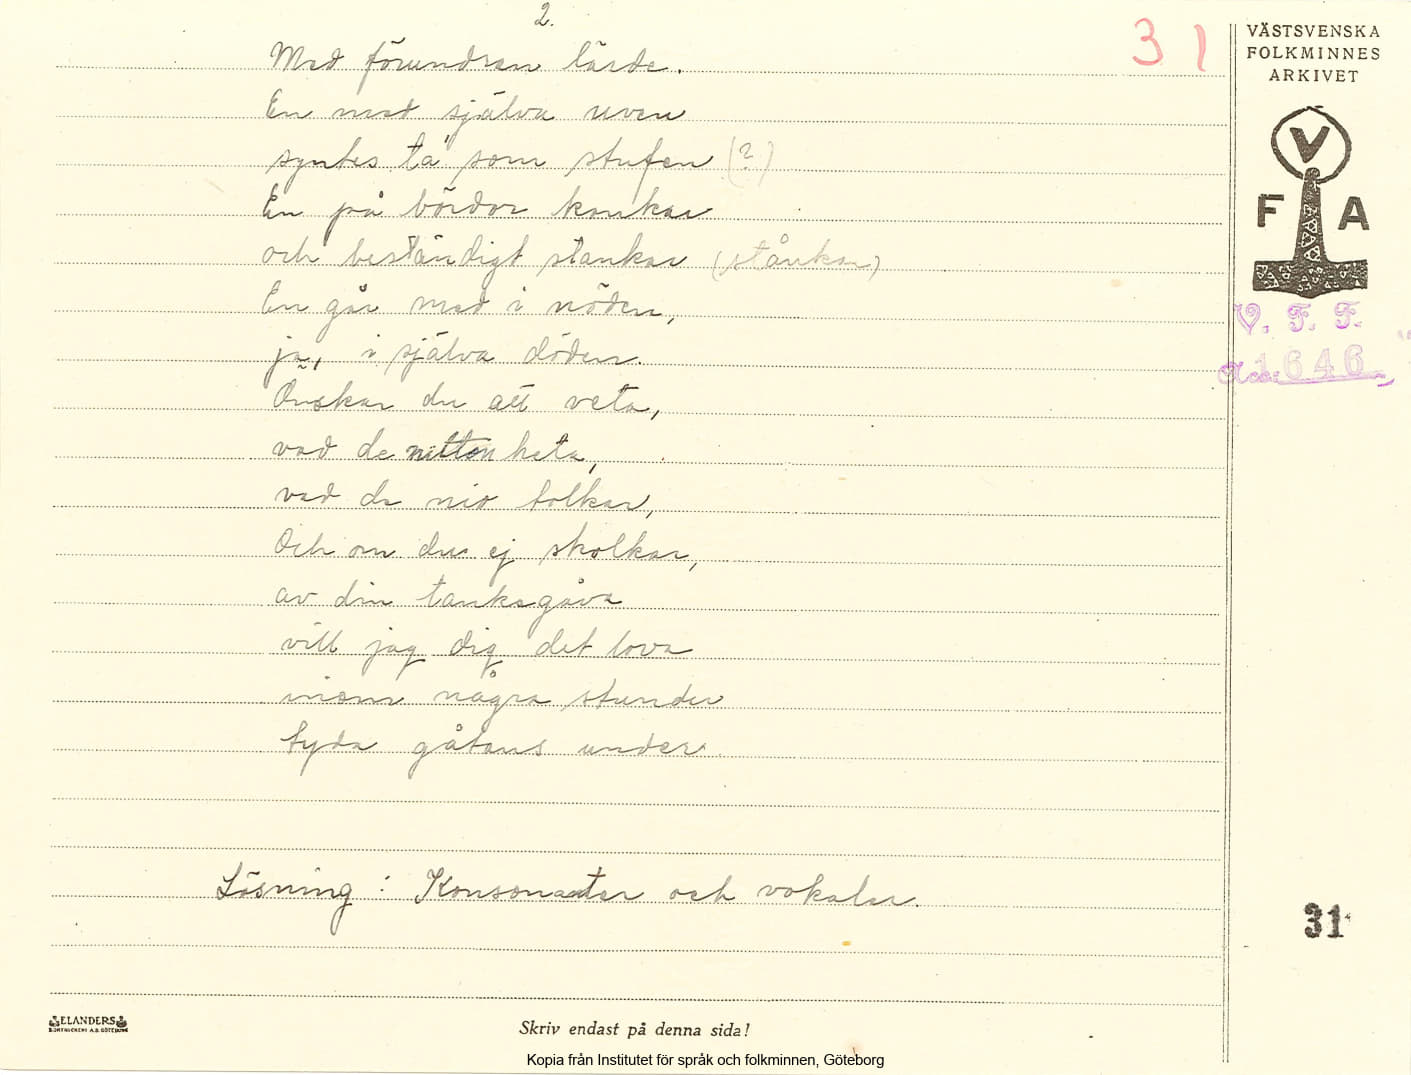 2.
31
VÄSTSVENSKA
FOLKMINNES
ARKIVET
V
F A
V. F. F.
Acc: 1646
Med förundran lärde.
En med själva uven
syntes ta som stufen (?)
En på bördor kankar
och beständigt stankar (stånkar)
En går med i nöden,
ja, i själva döden.
Önskar du att veta,
vad de nitton heta,
vad de nio tolkar,
Och om du ej skolkar,
av din tanksgåva
vill jag dig det lova
inom några stunder
tyda gåtans under.
Lösning: Konsonanter och vokaler.
31
ELANDERS
BOKTRYCKERI A.B. GÖTEBORG
Skriv endast på denna sida!
Kopia från Institutet för språk och folkminnen, Göteborg